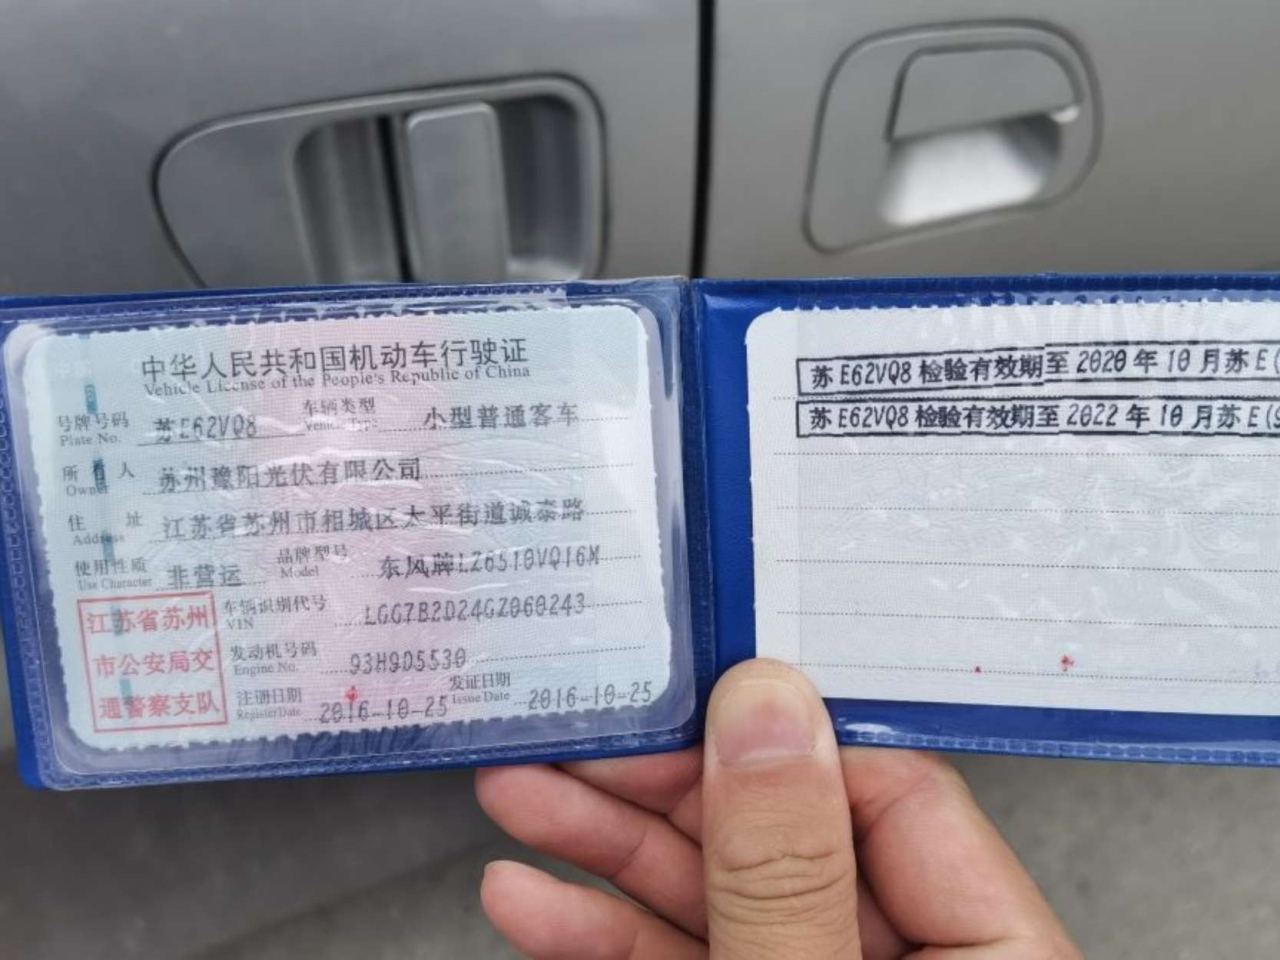 中华人民共和国机动车行驶证
Vehicle License of the People's Republic of China
号牌号码 苏E62VQ8 车辆类型 小型普通客车
Plate No. Vehicle Type
所有人 苏州豫阳光伏有限公司
Owner
住址 江苏省苏州市相城区太平街道诚泰路
Address
使用性质 非营运 品牌型号 东风牌LZ6510VQ16M
Use Character Model
江苏省苏州
市公安局交
通警察支队
车辆识别代号 LGG7B2D24GZ060243
VIN
发动机号码 93H9D5530
Engine No.
注册日期 2016-10-25 发证日期 2016-10-25
Register Date Issue Date
苏E62VQ8 检验有效期至 2020 年 10 月苏 E(
苏E62VQ8 检验有效期至 2022 年 10 月苏 E(